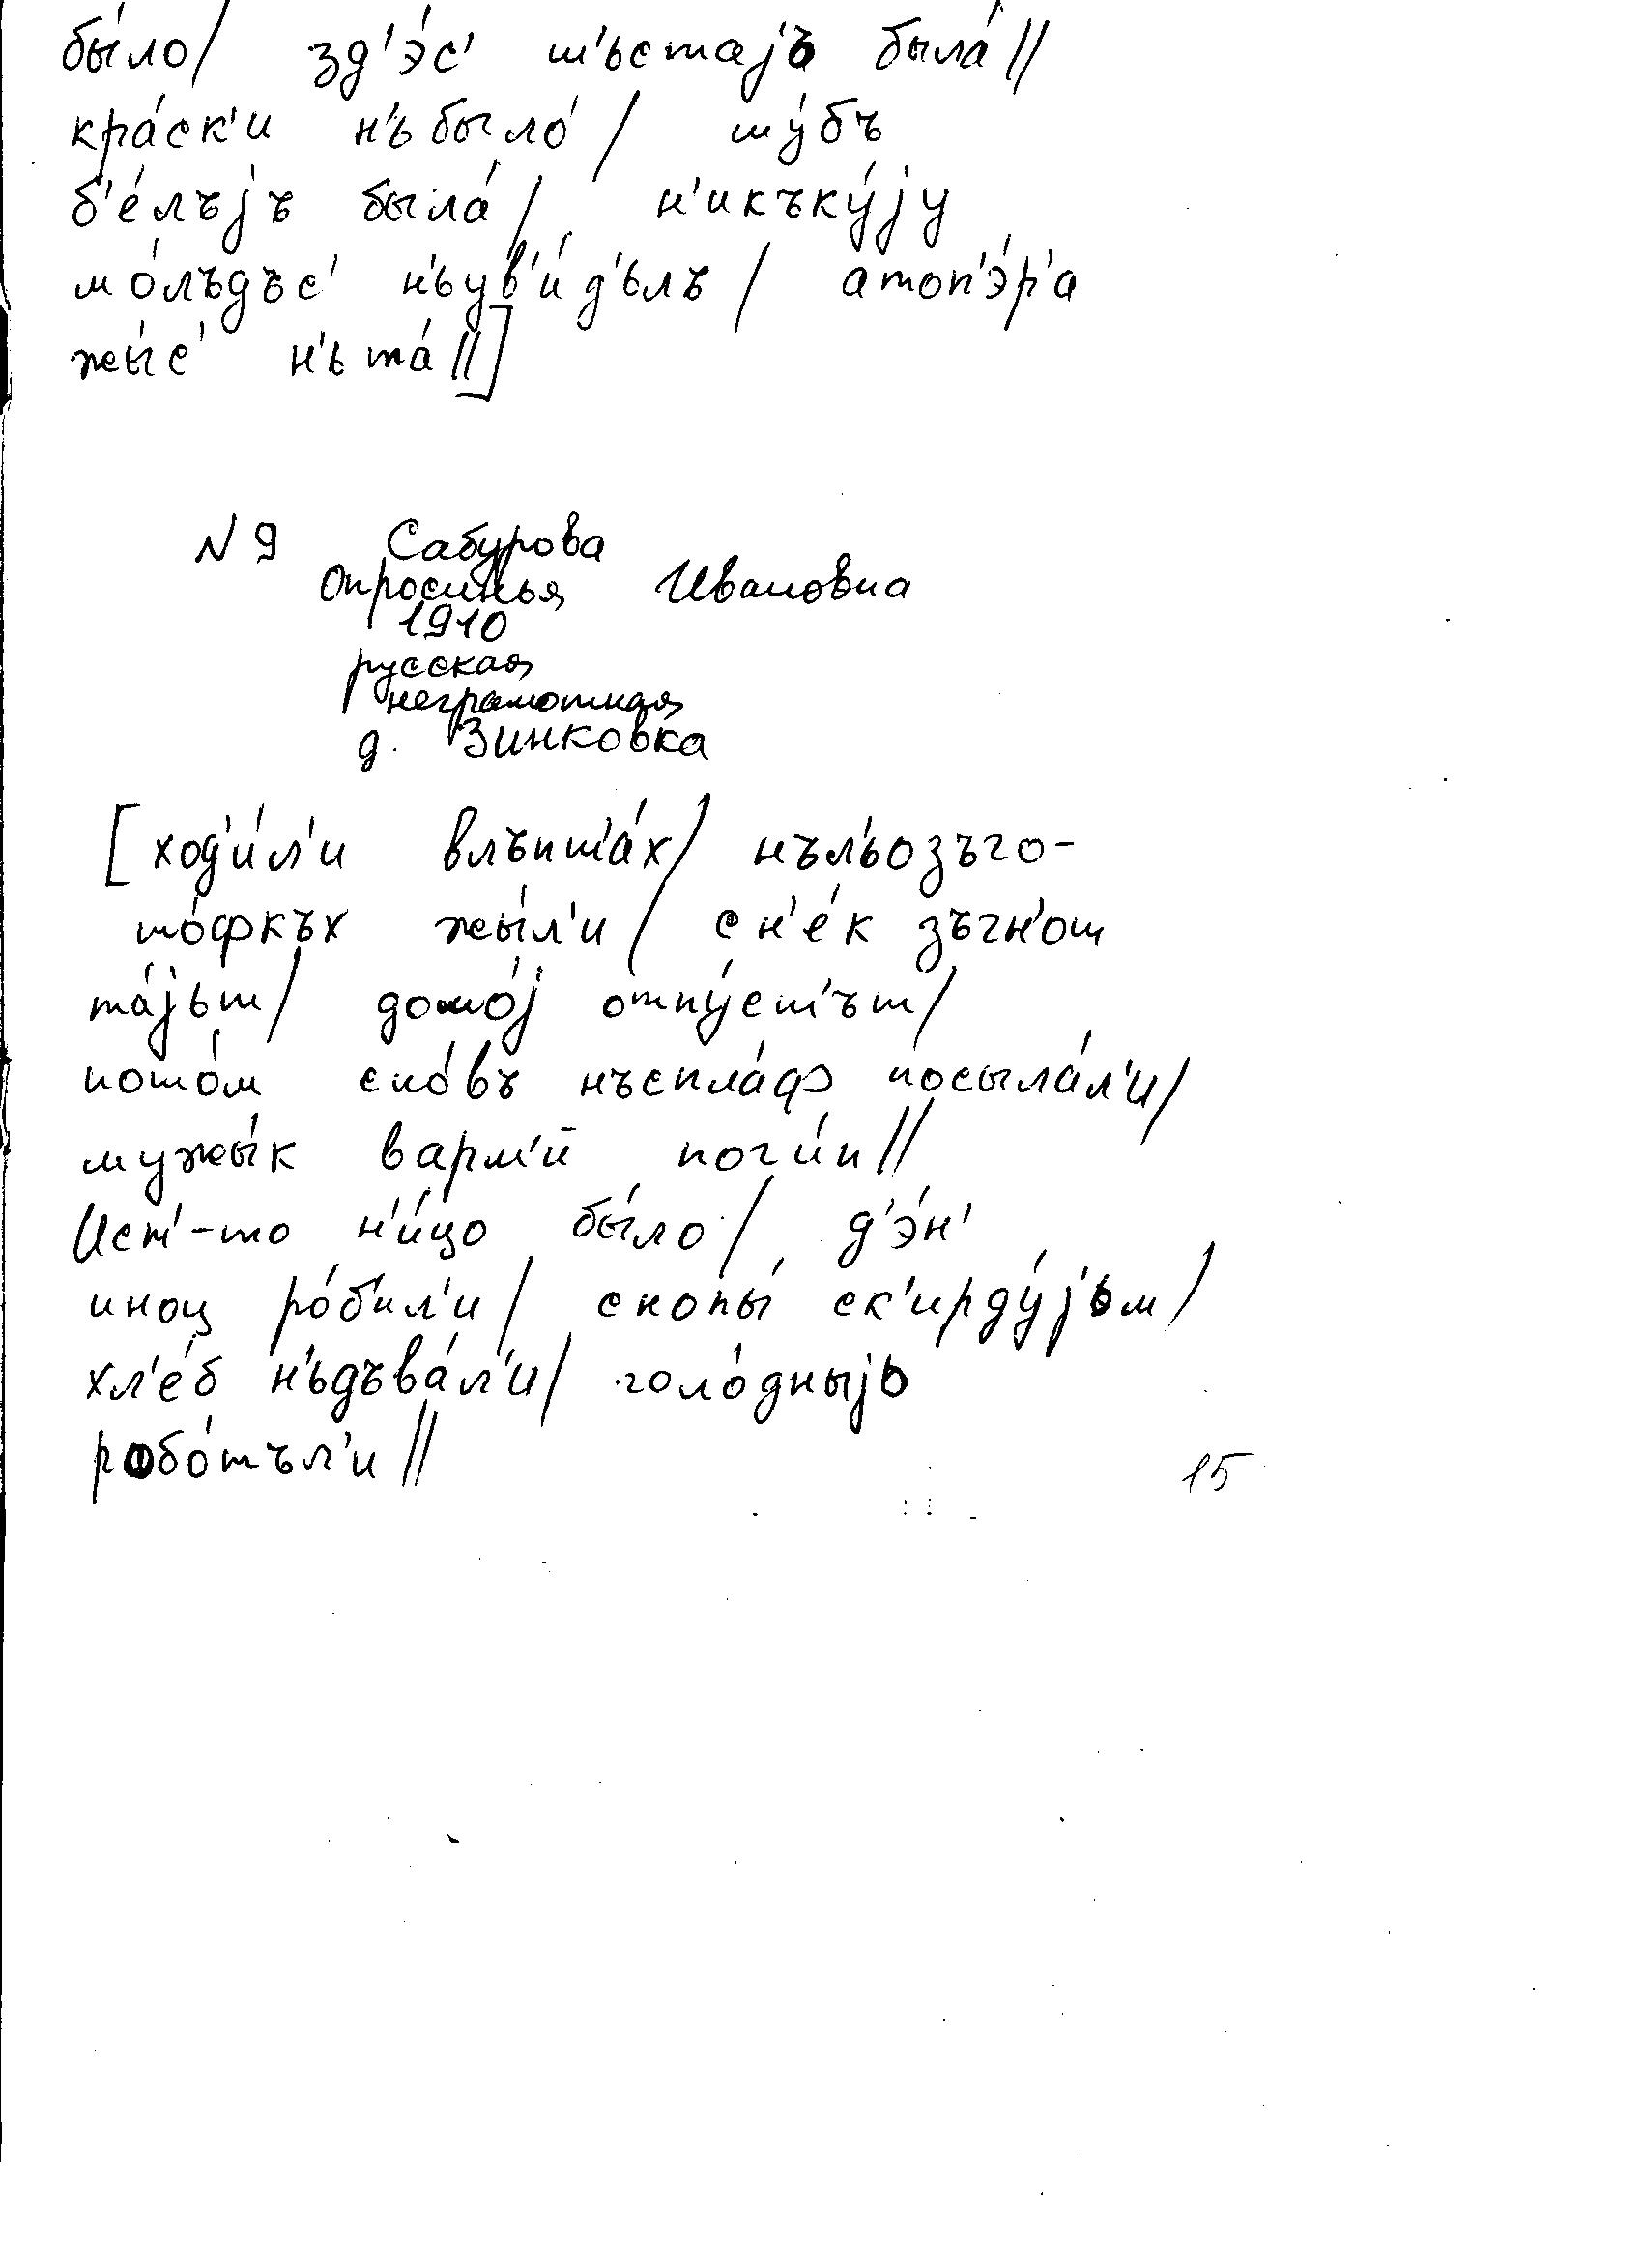 бы́ло/ зд'э́с' ш'ьстаjъ была́//
кра́ск'и н'ьбыло́/ шу́бъ
б'е́лъjъ была́/ н'икъку́jу
мо́лъдъс' н'ьув'и́д'ьлъ/ атоп'э́р'а
жы́с' н'ьта́//]
N 9 Сабурова
Опросинья Ивановна
1910
русская
неграмотная
д. Зинковка
[ход'и́л'и влъпт'а́х/ нъл'ьозъго-
то́фкъх жы́л'и/ сн'е́к зъгн'от
та́jьт/ домо́j отпу́ст'ът/
пото́м сно́въ нъспла́ф посыла́л'и/
мужы́к варм'ий поги́п//
Ист'-то н'и́цо бы́ло/ д'э́н'
иноц ро́б'ил'и/ снопы́ ск'ирду́jьм/
хл'е́б н'ьдъва́л'и/ голо́дныjь
робо́тъл'и//
15